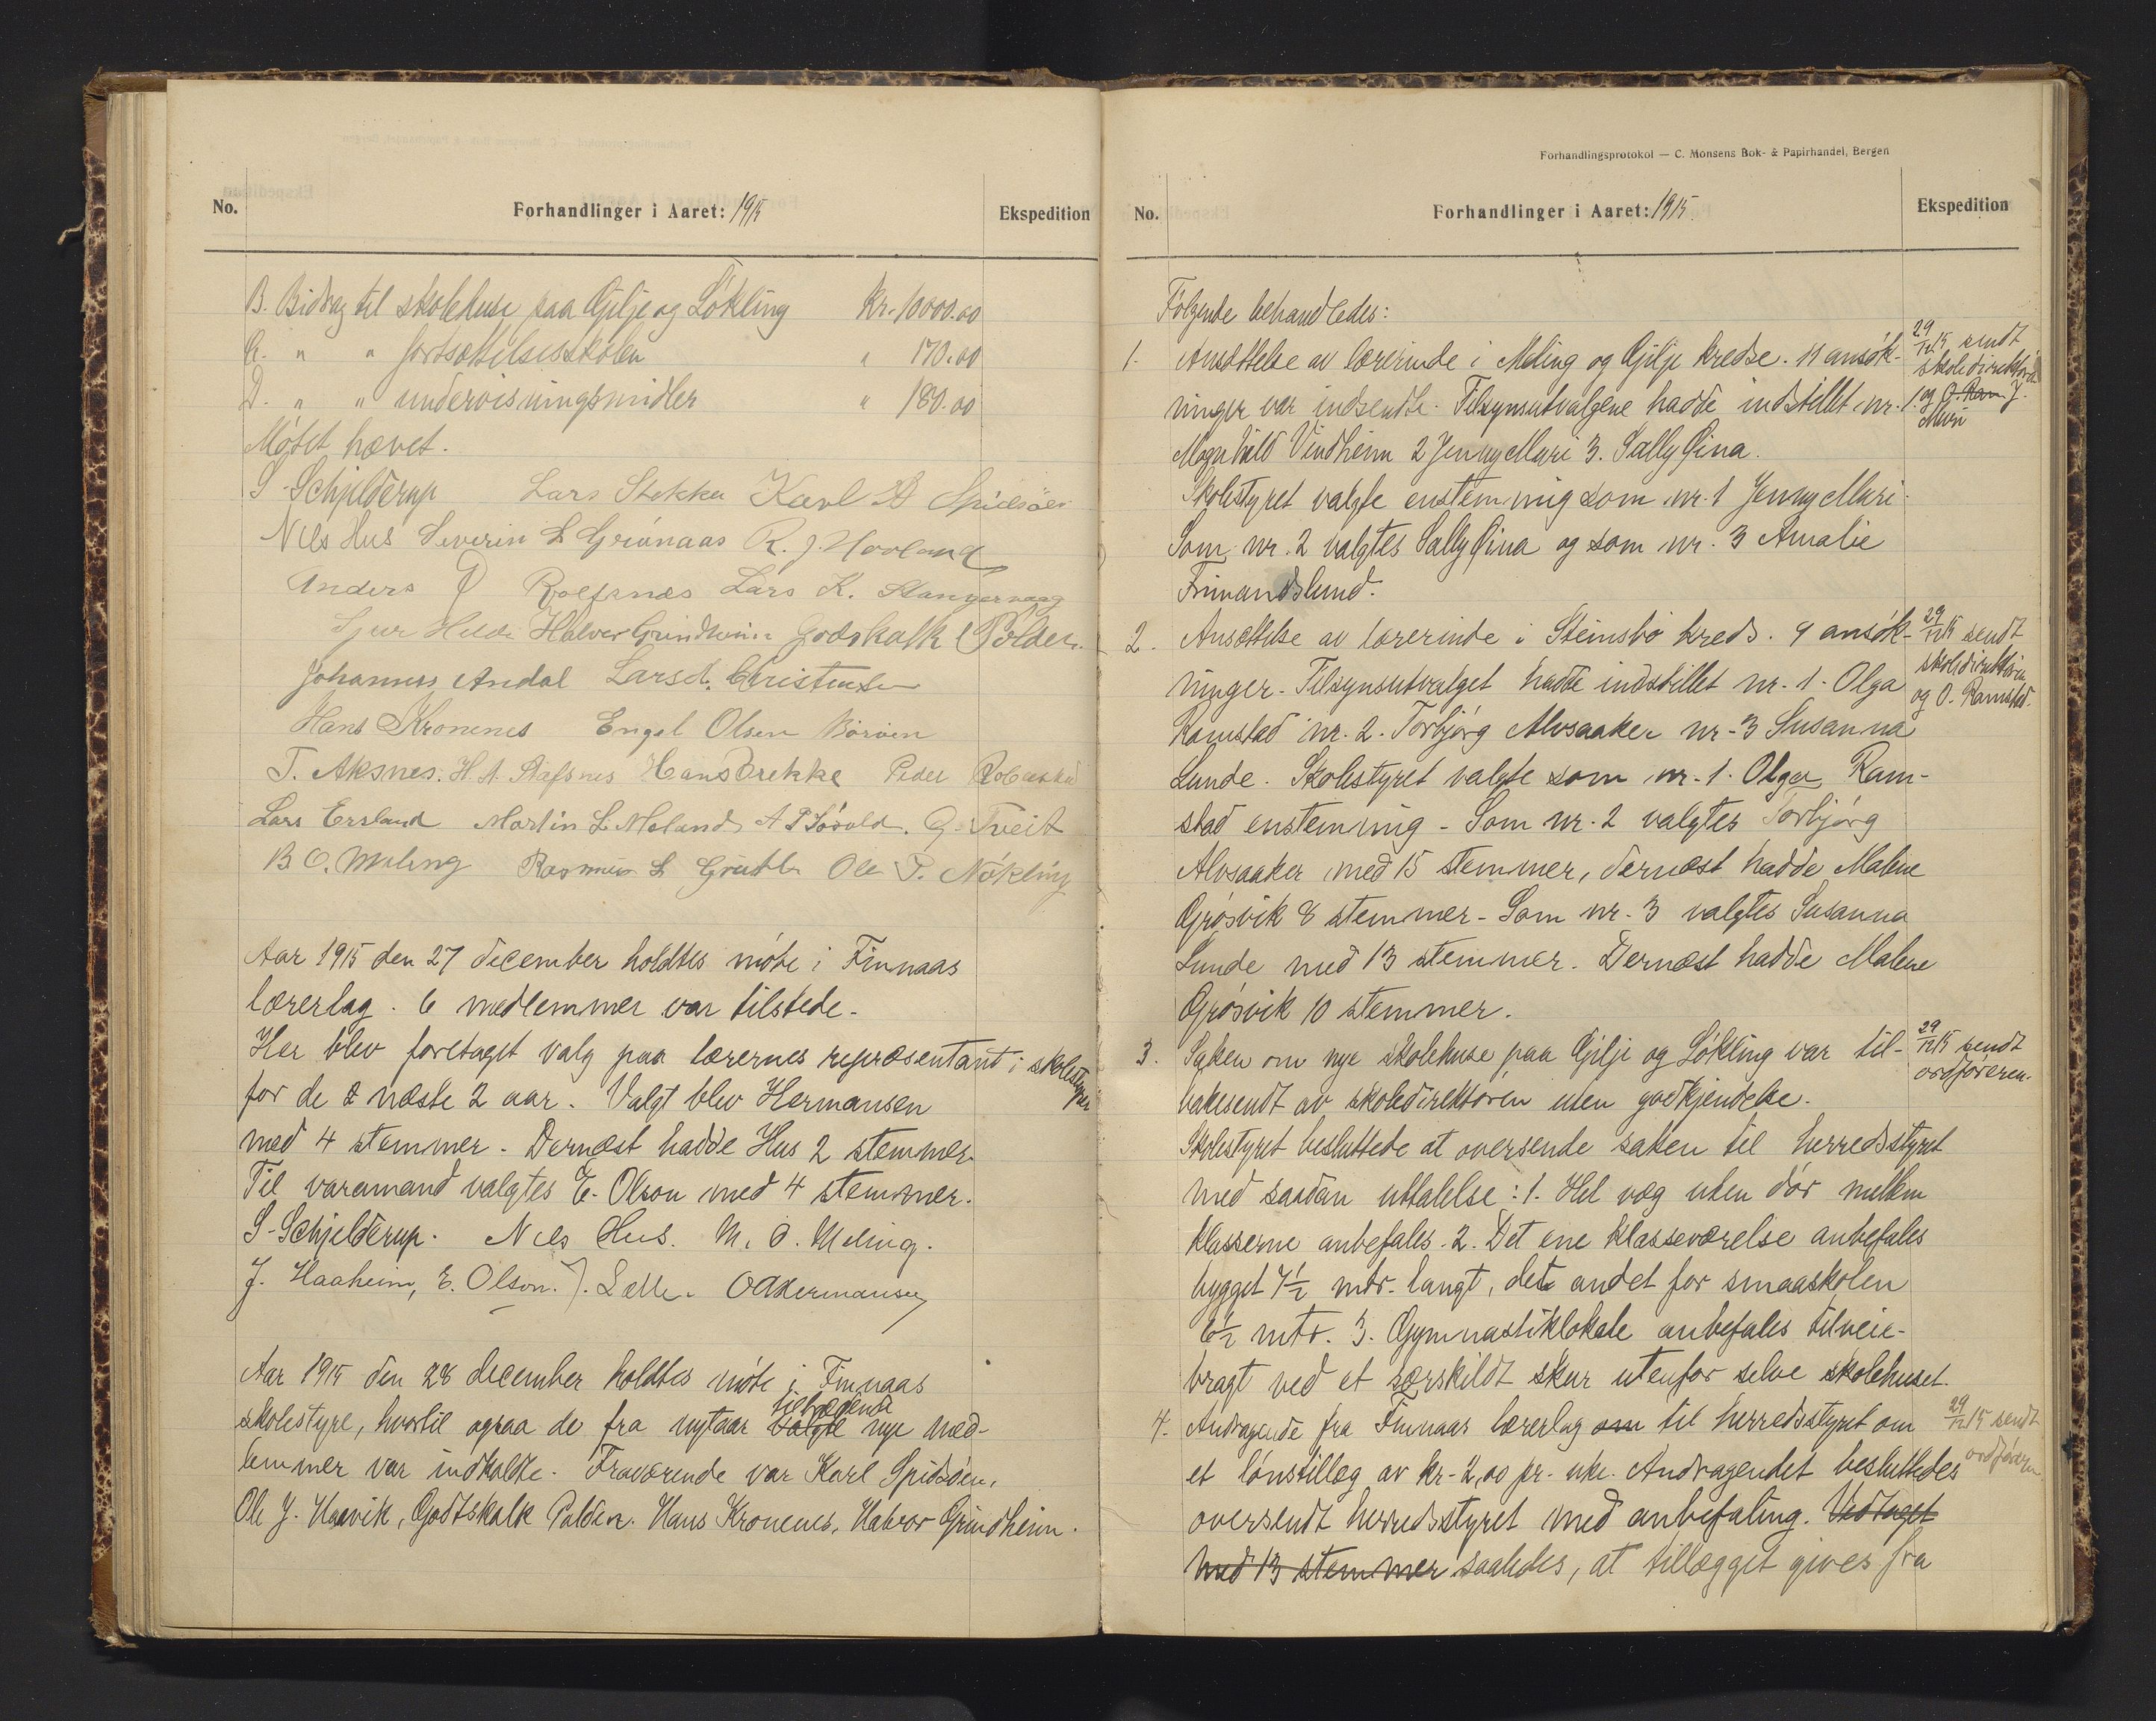 No.
Forhandlinger i Aaret: 1915
Ekspedition
B. Bidrag til skolehuse paa Gilje og Løkling Kr. 10000.00
C. " " fortsættelsesskolen " 170.00
D. " " undervisningsmidler " 180.00
Møtet hævet.
S. Schjelderup Lars Stokka Karl A Spidsøen
Nils Hus Severin L Grønaas R. J. Hovland
Anders Roefsnes Lars K. Stangervaag
Sjur Halvor Grindheim Godskalk Polden.
Johannes Andal Lars Christensen
Hans Kronenes Engel Olsen Børøen
T. Aksnes. H. A. Hans Brekke Peder
Lars Ersland Martin L. Meland A T Løvold. G. Tveit
B O. Meling Rasmus L Ole P. Nøkling
Aar 1915 den 27 december holdtes møte i Finnaas
lærerlag. 6 medlemmer var tilstede.
Her blev foretaget valg paa lærernes repræsentant i skolestyret
for de 2 næste 2 aar. Valgt blev Hermansen
med 4 stemmer. Dernæst hadde Hus 2 stemmer.
Til varamand valgtes E. Olson med 4 stemmer.
S. Schjelderup. Nils Hus. M. O. Meling.
J. Haaheim, E. Olson. J. Sætte. O Hermansen
Aar 1915 den 28 december holdtes møte i Finnaas
skolestyre, hvortil ogsaa de fra nytaar valgte tiltrædende nye med-
lemmer var indkaldte. Fraværende var Karl Spidsøen,
Ole J. Haavik, Godtskalk Polden. Hans Kronenes, Halvor Grindheim.
Forhandlingsprotokol — C. Monsens Bok- & Papirhandel, Bergen
No.
Forhandlinger i Aaret: 1915.
Ekspedition
Følgende behandledes:
1. Ansættelse av lærerinde i Meling og Gilje kredse. 11 ansøk-
29/12 15 sendt
skoledirektøren
ninger var indsendte. Tilsynsutvalgene hadde indstillet nr. 1.
og O. Ram J.
Møri
Magnhild Vindheim 2 Jenny Møri 3. Sally Gina.
Skolestyret valgte enstemmig som nr. 1 Jenny Møri.
Som nr. 2 valgtes Sally Gina og som nr. 3 Amalie
Finnandslund.
2. Ansættelse av lærerinde i Steinsbø kreds. 9 ansøk-
29/12 15 sendt
skoledirektøren
ninger. Tilsynsutvalget hadde indstillet nr. 1. Olga
og O. Ramstad.
Ramstad nr. 2. Torbjørg Alvsaaker nr. 3 Susanna
Lunde. Skolestyret valgte som nr. 1. Olga Ram-
stad enstemmig. Som nr. 2 valgtes Torbjørg
Alvsaaker med 15 stemmer, dernæst hadde Malene
Grøsvik 8 stemmer. Som nr. 3 valgtes Susanna
Lunde med 13 stemmer. Dernæst hadde Malene
Grøsvik 10 stemmer.
3. Saken om nye skolehuse paa Gilje og Løkling var til-
29/12 15 sendt
ordføreren.
bakesendt av skoledirektøren uten godkjendelse.
Skolestyret besluttede at oversende saken til herredsstyret
med saadan uttalelse: 1. Hel væg uten dør mellem
klasserne anbefales. 2. Det ene klasseværelse anbefales
bygget 7 1/2 mtr. langt, det andet for smaaskolen
6 1/2 mtr. 3. Gymnastiklokale anbefales tilveie-
bragt ved et særskildt skur utenfor selve skolehuset.
4. Andragende fra Finnaas lærerlag om til herredsstyret om
29/12 15 sendt
ordføreren
et lønstillæg av kr. 2,00 pr. uke. Andragendet besluttedes
oversendt herredsstyret med anbefaling. Vedtaget
med 13 stemmer saaledes, at tillægget gives fra